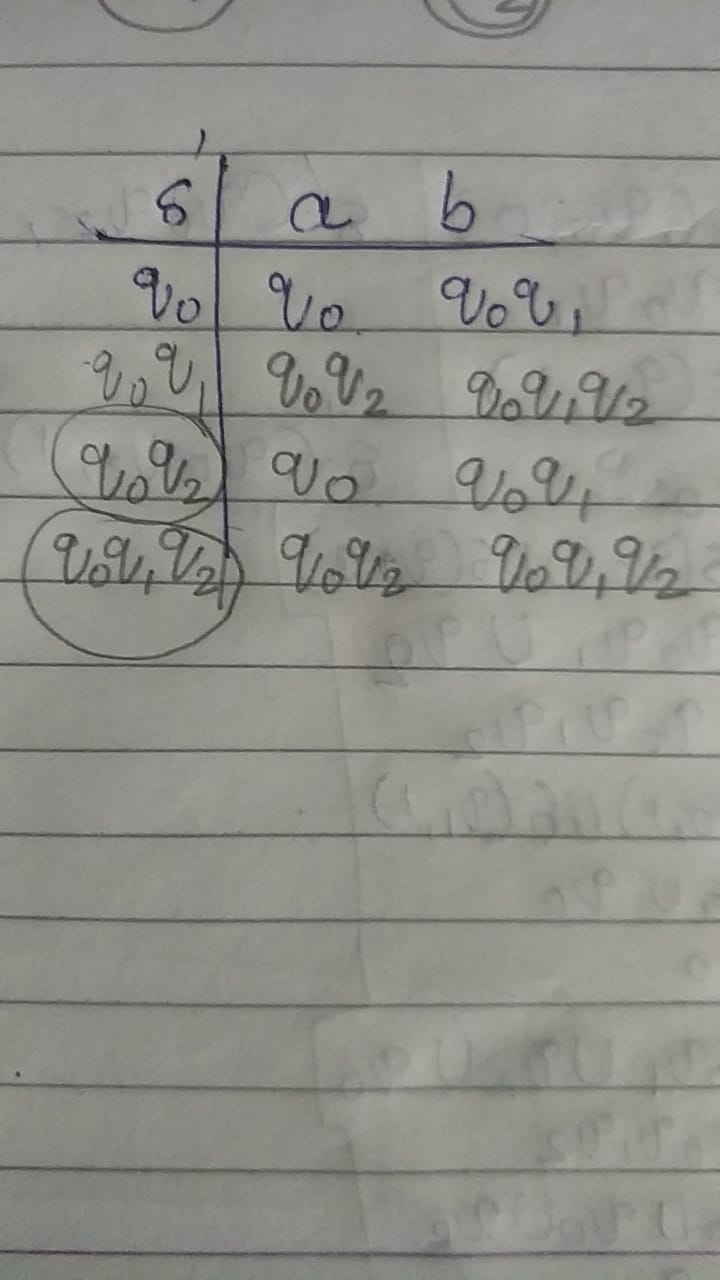 δ' a b
q₀ q₀ q₀q₁
q₀q₁ q₀q₂ q₀q₁q₂
q₀q₂ q₀ q₀q₁
q₀q₁q₂ q₀q₂ q₀q₁q₂